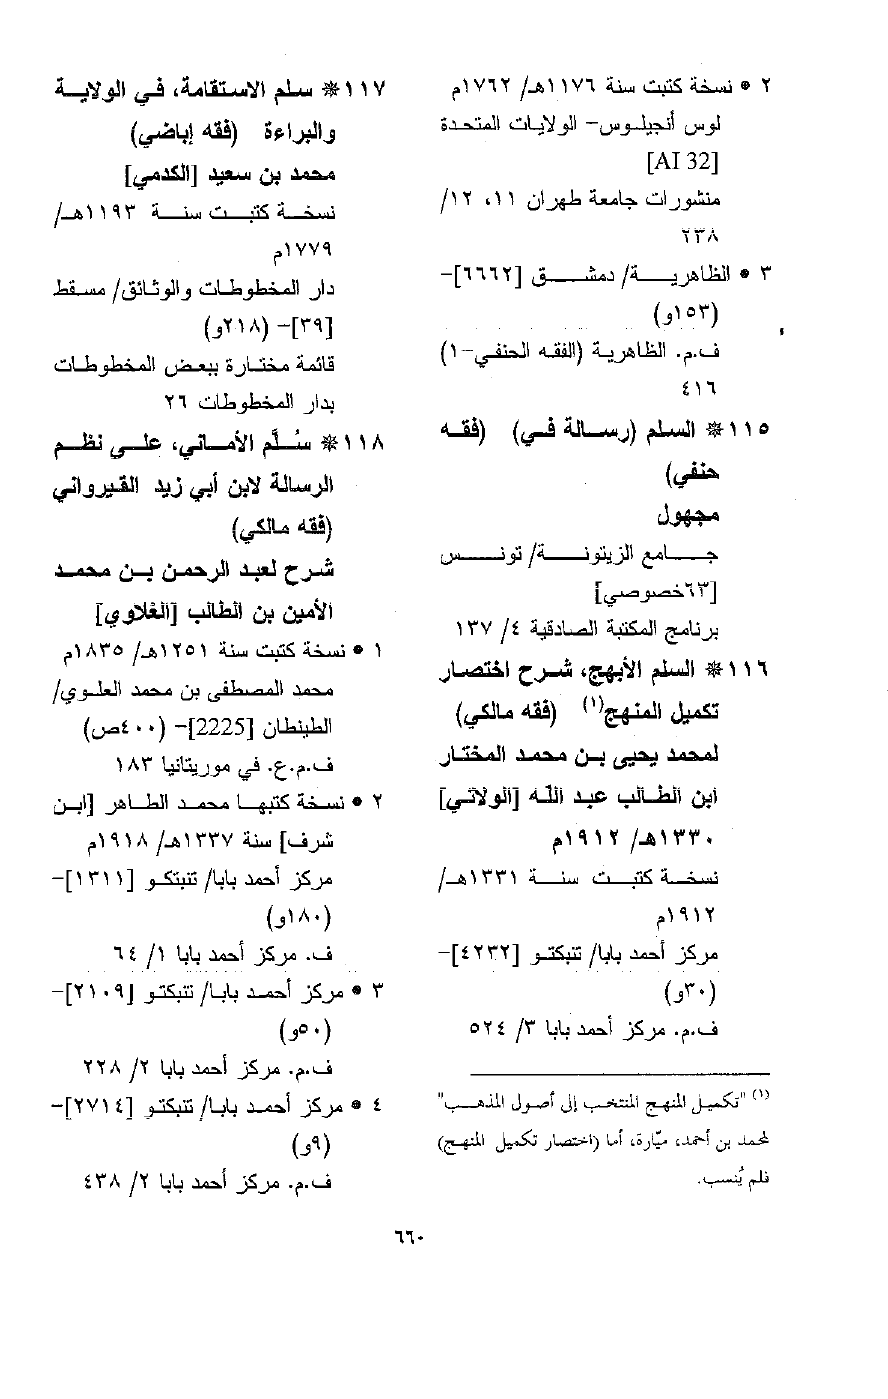 ٢ • نسخة كتبت سنة ١١٧٦هـ/ ١٧٦٢م
لوس أنجيلوس- الولايات المتحدة
[AI 32]
منشورات جامعة طهران ١١، ١٢/
٢٣٨
٣ • الظاهرية/ دمشق [٦٦٦٢]-
(١٥٣و)
ف.م. الظاهرية (الفقه الحنفي-١)
٤١٦
١١٥ * السلم (رسالة في) (فقه
حنفي)
مجهول
جامع الزيتونة/ تونس
[٦٣خصوصي]
برنامج المكتبة الصادقية ٤/ ١٣٧
١١٦ * السلم الأبهج، شرح اختصار
تكميل المنهج(١) (فقه مالكي)
لمحمد يحيى بن محمد المختار
ابن الطالب عبد الله [الولاتي]
١٣٣٠هـ/ ١٩١٢م
نسخة كتبت سنة ١٣٣١هـ/
١٩١٢م
مركز أحمد بابا/ تنبكتو [٤٢٣٢]-
(٣٠و)
ف.م. مركز أحمد بابا ٣/ ٥٢٤
(١) "تكميل المنهج المنتخب إلى أصول المذهب"
لمحمد بن أحمد، ميّارة، أما (اختصار تكميل المنهج)
فلم يُنسب.
١١٧ * سلم الاستقامة، في الولاية
والبراءة (فقه إباضي)
محمد بن سعيد [الكدمي]
نسخة كتبت سنة ١١٩٣هـ/
١٧٧٩م
دار المخطوطات والوثائق/ مسقط
[٣٩]- (٢١٨و)
قائمة مختارة ببعض المخطوطات
بدار المخطوطات ٢٦
١١٨ * سُلَّم الأماني، على نظم
الرسالة لابن أبي زيد القيرواني
(فقه مالكي)
شرح لعبد الرحمن بن محمد
الأمين بن الطالب [الغلاوي]
١ • نسخة كتبت سنة ١٢٥١هـ/ ١٨٣٥م
محمد المصطفى بن محمد العلوي/
الطينطان [2225]- (٤٠٠ص)
ف.م.ع. في موريتانيا ١٨٣
٢ • نسخة كتبها محمد الطاهر [ابن
شرف] سنة ١٣٣٧هـ/ ١٩١٨م
مركز أحمد بابا/ تنبتكو [١٣١١]-
(١٨٠و)
ف. مركز أحمد بابا ١/ ٦٤
٣ • مركز أحمد بابا/ تنبكتو [٢١٠٩]-
(٥٠و)
ف.م. مركز أحمد بابا ٢/ ٢٢٨
٤ • مركز أحمد بابا/ تنبكتو [٢٧١٤]-
(٩و)
ف.م. مركز أحمد بابا ٢/ ٤٣٨
٦٦٠